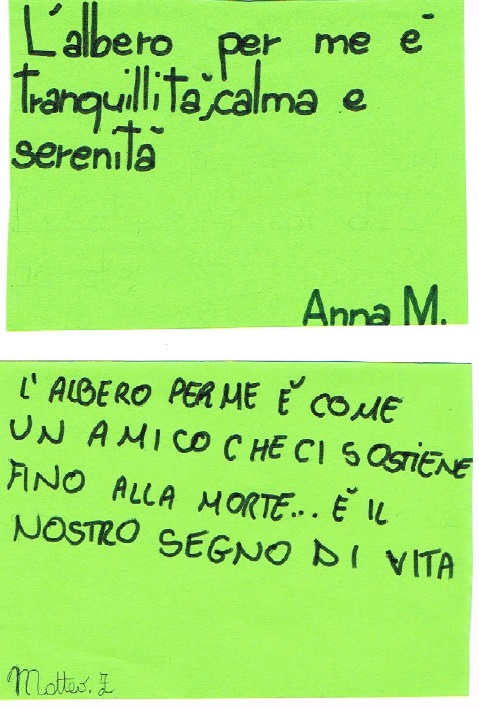 L'albero per me è
tranquillità, calma e
serenità
Anna M.
L'ALBERO PER ME È COME
UN AMICO CHE CI SOSTIENE
FINO ALLA MORTE... È IL
NOSTRO SEGNO DI VITA
Matteo. Z